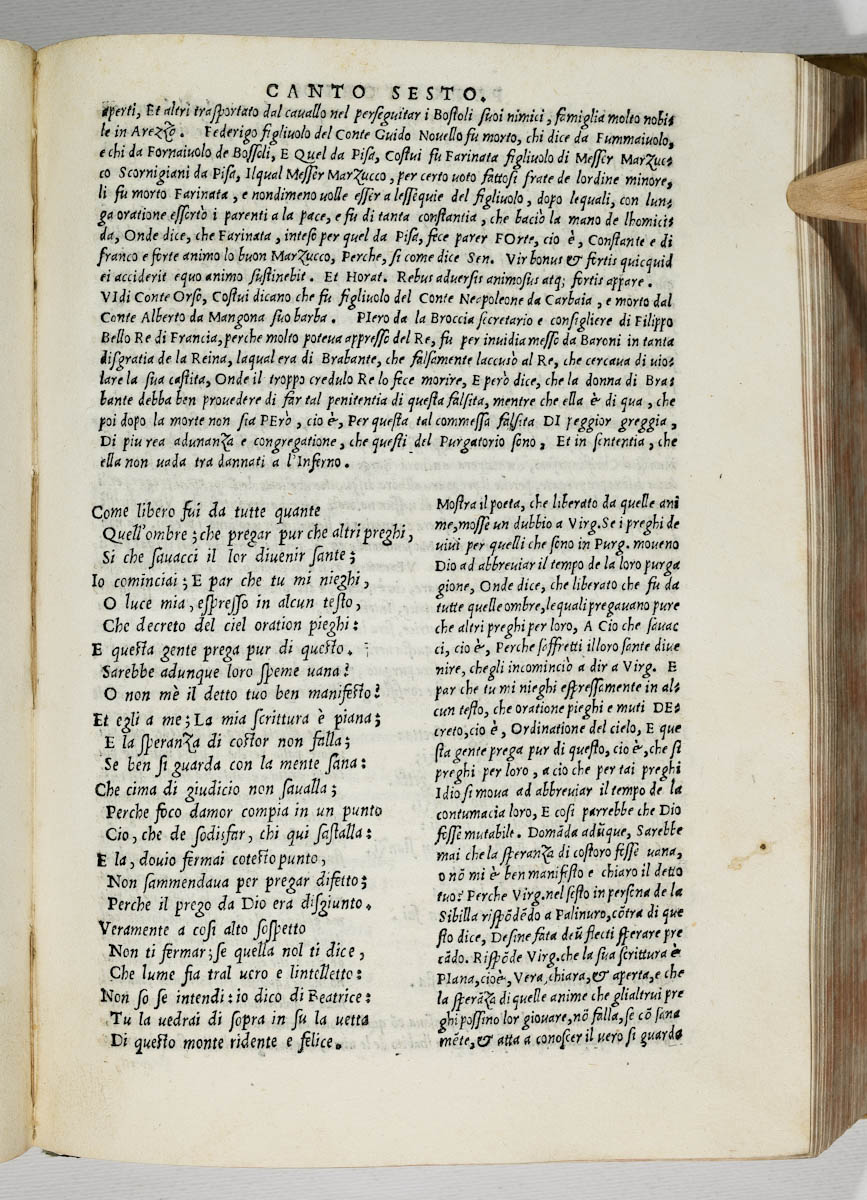 CANTO SESTO.
aperti, Et altri trasportato dal cauallo nel perseguitar i Bostoli suoi nimici, famiglia molto nobi-
le in Arezzo. Federigo figliuolo del Conte Guido Nouello fu morto, chi dice da Fummaiuolo,
e chi da Fornaiuolo de Bossoli, E Quel da Pisa, Costui fu Farinata figliuolo di Messer Marzuc-
co Scornigiani da Pisa, Ilqual Messer Marzucco, per certo uoto fattosi frate de lordine minore,
li fu morto Farinata, e nondimeno uolle esser a lessequie del figliuolo, dopo lequali, con lun-
ga oratione essortò i parenti a la pace, e fu di tanta constantia, che baciò la mano de lhomici-
da, Onde dice, che Farinata, inteso per quel da Pisa, fece parer FOrte, cio è, Constante e di
franco e forte animo lo buon Marzucco, Perche, si come dice Sen. Vir bonus & fortis quicquid
ei acciderit equo animo sustinebit. Et Horat. Rebus aduersis animosus atq; fortis appare.
VIdi Conte Orso, Costui dicano che fu figliuolo del Conte Neopoleone da Carbaia, e morto dal
Conte Alberto da Mangona suo barba. PIero da la Broccia secretario e consigliere di Filippo
Bello Re di Francia, perche molto poteua appresso del Re, fu per inuidia messo da Baroni in tanta
disgratia de la Reina, laqual era di Brabante, che falsamente laccusò al Re, che cercaua di uio-
lare la sua castita, Onde il troppo credulo Re lo fece morire, E però dice, che la donna di Bra-
bante debba ben prouedere di far tal penitentia di questa falsita, mentre che ella è di qua, che
poi dopo la morte non sia PErò, cio è, Per questa tal commessa falsita DI peggior greggia,
Di piu rea adunanza e congregatione, che questi del Purgatorio sono, Et in sententia, che
ella non uada tra dannati a l'Inferno.
Come libero fui da tutte quante
Quell'ombre; che pregar pur che altri preghi,
Si che sauacci il lor diuenir sante;
Io cominciai; E par che tu mi nieghi,
O luce mia, espresso in alcun testo,
Che decreto del ciel oration pieghi:
E questa gente prega pur di questo.
Sarebbe adunque loro speme uana?
O non mè il detto tuo ben manifesto?
Et egli a me; La mia scrittura è piana;
E la speranza di costor non falla;
Se ben si guarda con la mente sana:
Che cima di giudicio non saualla;
Perche foco damor compia in un punto
Cio, che de sodisfar, chi qui sastalla:
E la, douio fermai cotesto punto,
Non sammendaua per pregar difetto;
Perche il prego da Dio era disgiunto.
Veramente a cosi alto sospetto
Non ti fermar; se quella nol ti dice,
Che lume fia tral uero e lintelletto:
Non so se intendi: io dico di Beatrice:
Tu la uedrai di sopra in su la uetta
Di questo monte ridente e felice.
Mostra il poeta, che liberato da quelle ani
me, mosse un dubbio a Virg. Se i preghi de
uiui per quelli che sono in Purg. moueno
Dio ad abbreuiar il tempo de la loro purga
gione, Onde dice, che liberato che fu da
tutte quelle ombre, lequali pregauano pure
che altri preghi per loro, A Cio che sauac
ci, cio è, Perche s'affretti il loro sante diue
nire, ch egli incominciò a dir a Virg. E
par che tu mi nieghi espressamente in al-
cun testo, che oratione pieghi e muti DE-
creto, cio è, Ordinatione del cielo, E que
sta gente prega pur di questo, cio è, che si
preghi per loro, a cio che per tai preghi
Idio si moua ad abbreuiar il tempo de la
contumacia loro, E cosi parrebbe che Dio
fosse mutabile. Domāda adūque, Sarebbe
mai che la speranza di costoro fosse uana,
o nō mi è ben manifesto e chiaro il detto
tuo? Perche Virg. nel sesto in persona de la
Sibilla rispōdēdo a Palinuro, cōtra di que
sto dice, Desine fata deū flecti sperare pre
cādo. Rispōde Virg. che la sua scrittura è
PIana, cioè, Vera, chiara, & aperta, e che
la sperāza di quelle anime che glialtrui pre
ghi possino lor giouare, nō falla, se cō sana
mēte, & atta a conoscer il uero si guarda